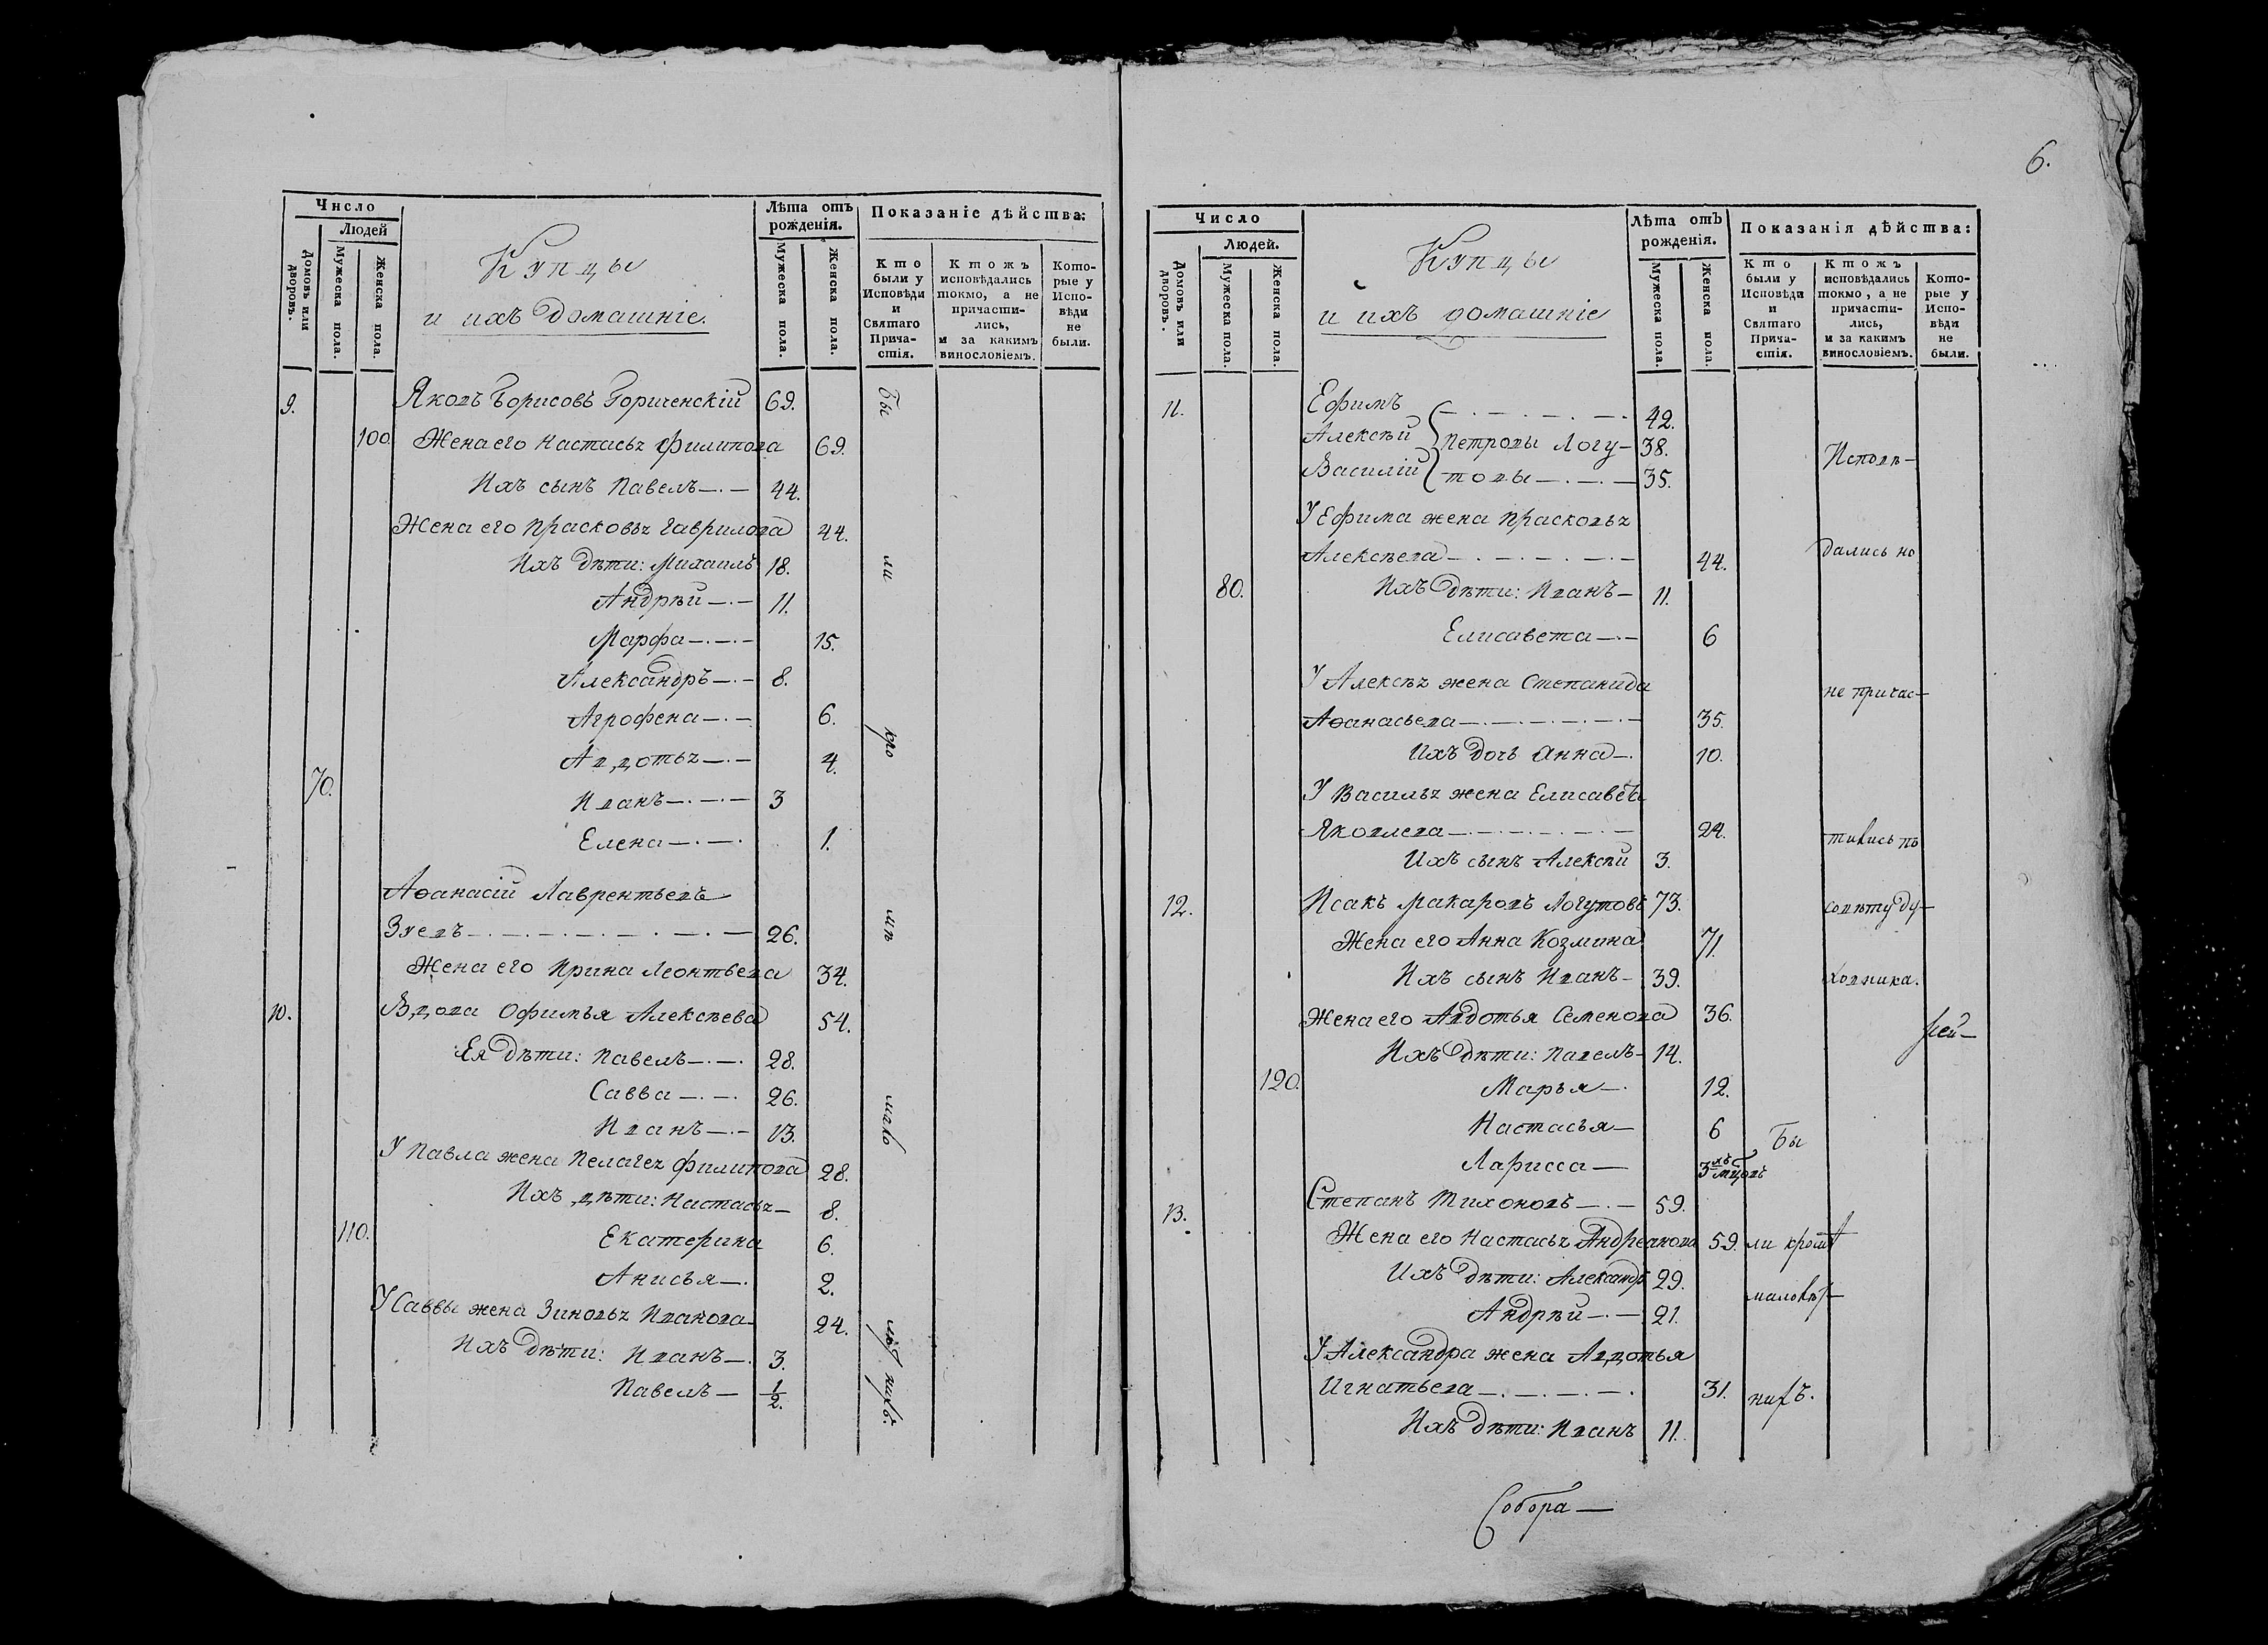 Число
Людей
Домовъ или дворовъ.
Мужеска пола.
Женска пола.
Купцы
и ихъ домашніе.
Лѣта отъ рожденія.
Мужеска пола.
Женска пола.
Показаніе дѣйства:
Кто были у Исповѣди и Святаго Прича-стія.
Ктожъ исповѣдались токмо, а не причасти-лись, и за какимъ винословіемъ.
Кото-рые у Испо-вѣди не были.
9. Яковъ Борисовъ Горшченскій 69. Бы
100. Жена его Настасья Филипова 69.
Ихъ сынъ Павелъ 44.
Жена его Прасковья Гаврилова 44.
Ихъ дѣти: Михаилъ 18. ли
Андрѣй 11.
Марфа 15.
Александръ 8.
Агрофена 6. кро
Авдотья 4.
70. Иванъ 3
Елена 1.
Аѳанасій Лаврентьевъ
Зуевъ 26. мѣ
Жена его Ирина Леонтьева 34.
10. Вдова Офимья Алексѣева 54.
Ея дѣти: Павелъ 28.
Савва 26. мало
Иванъ 13.
У Павла жена Пелагея Филипова 28.
Ихъ дѣти: Настасья 8.
110. Екатерина 6.
Анисья 2.
У Саввы жена Зиновья Иванова 24. лѣт
Ихъ дѣти: Иванъ 3.
Павелъ 1/2. нихъ.
6.
Число
Людей.
Домовъ или дворовъ.
Мужеска пола.
Женска пола.
Купцы
и ихъ домашніе
Лѣта отъ рожденія.
Мужеска пола.
Женска пола.
Показанія дѣйства:
Кто были у Исповѣди и Святаго Прича-стія.
Ктожъ исповѣдались токмо, а не причасти-лись, и за какимъ винословіемъ.
Кото-рые у Испо-вѣди не были.
11. Ефимъ 42.
Алексѣй Петровы Логу- 38. Исповѣ-
Василій товы 35.
У Ефима жена Прасковья
Алексѣева 44. дались но
80. Ихъ дѣти: Иванъ 11.
Елисавета 6
У Алексѣя жена Степанида не причас-
Аѳанасьева 35.
Ихъ дочь Анна 10.
У Василья жена Елисавета
Яковлева 24. тились по
Ихъ сынъ Алексѣй 3.
12. Исакъ Макаровъ Логутовъ 73. совѣту ду-
Жена его Анна Козмина 71.
Ихъ сынъ Иванъ 39. ховника.
Жена его Авдотья Семенова 36.
Ихъ дѣти: Павелъ 14.
120. Марья 12.
Настасья 6 Бы
Ларисса 3хъ мцовъ
13. Степанъ Тихоновъ 59.
Жена его Настасья Андреанова 59. ли кромѣ
Ихъ дѣти: Александръ 29. малолѣт-
Андрѣй 21.
У Александра жена Авдотья
Игнатьева 31. нихъ.
Ихъ дѣти: Иванъ 11.
Собора